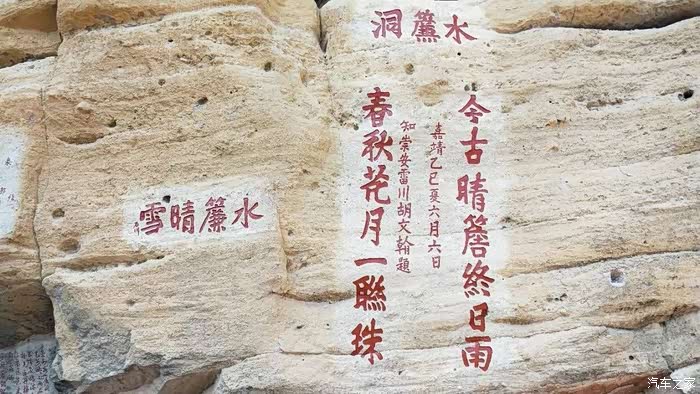 水簾洞
今古晴簷終日雨
嘉靖乙巳夏六月六日
知崇安雷川胡文翰題
春秋花月一聯珠
水簾晴雪
汽车之家